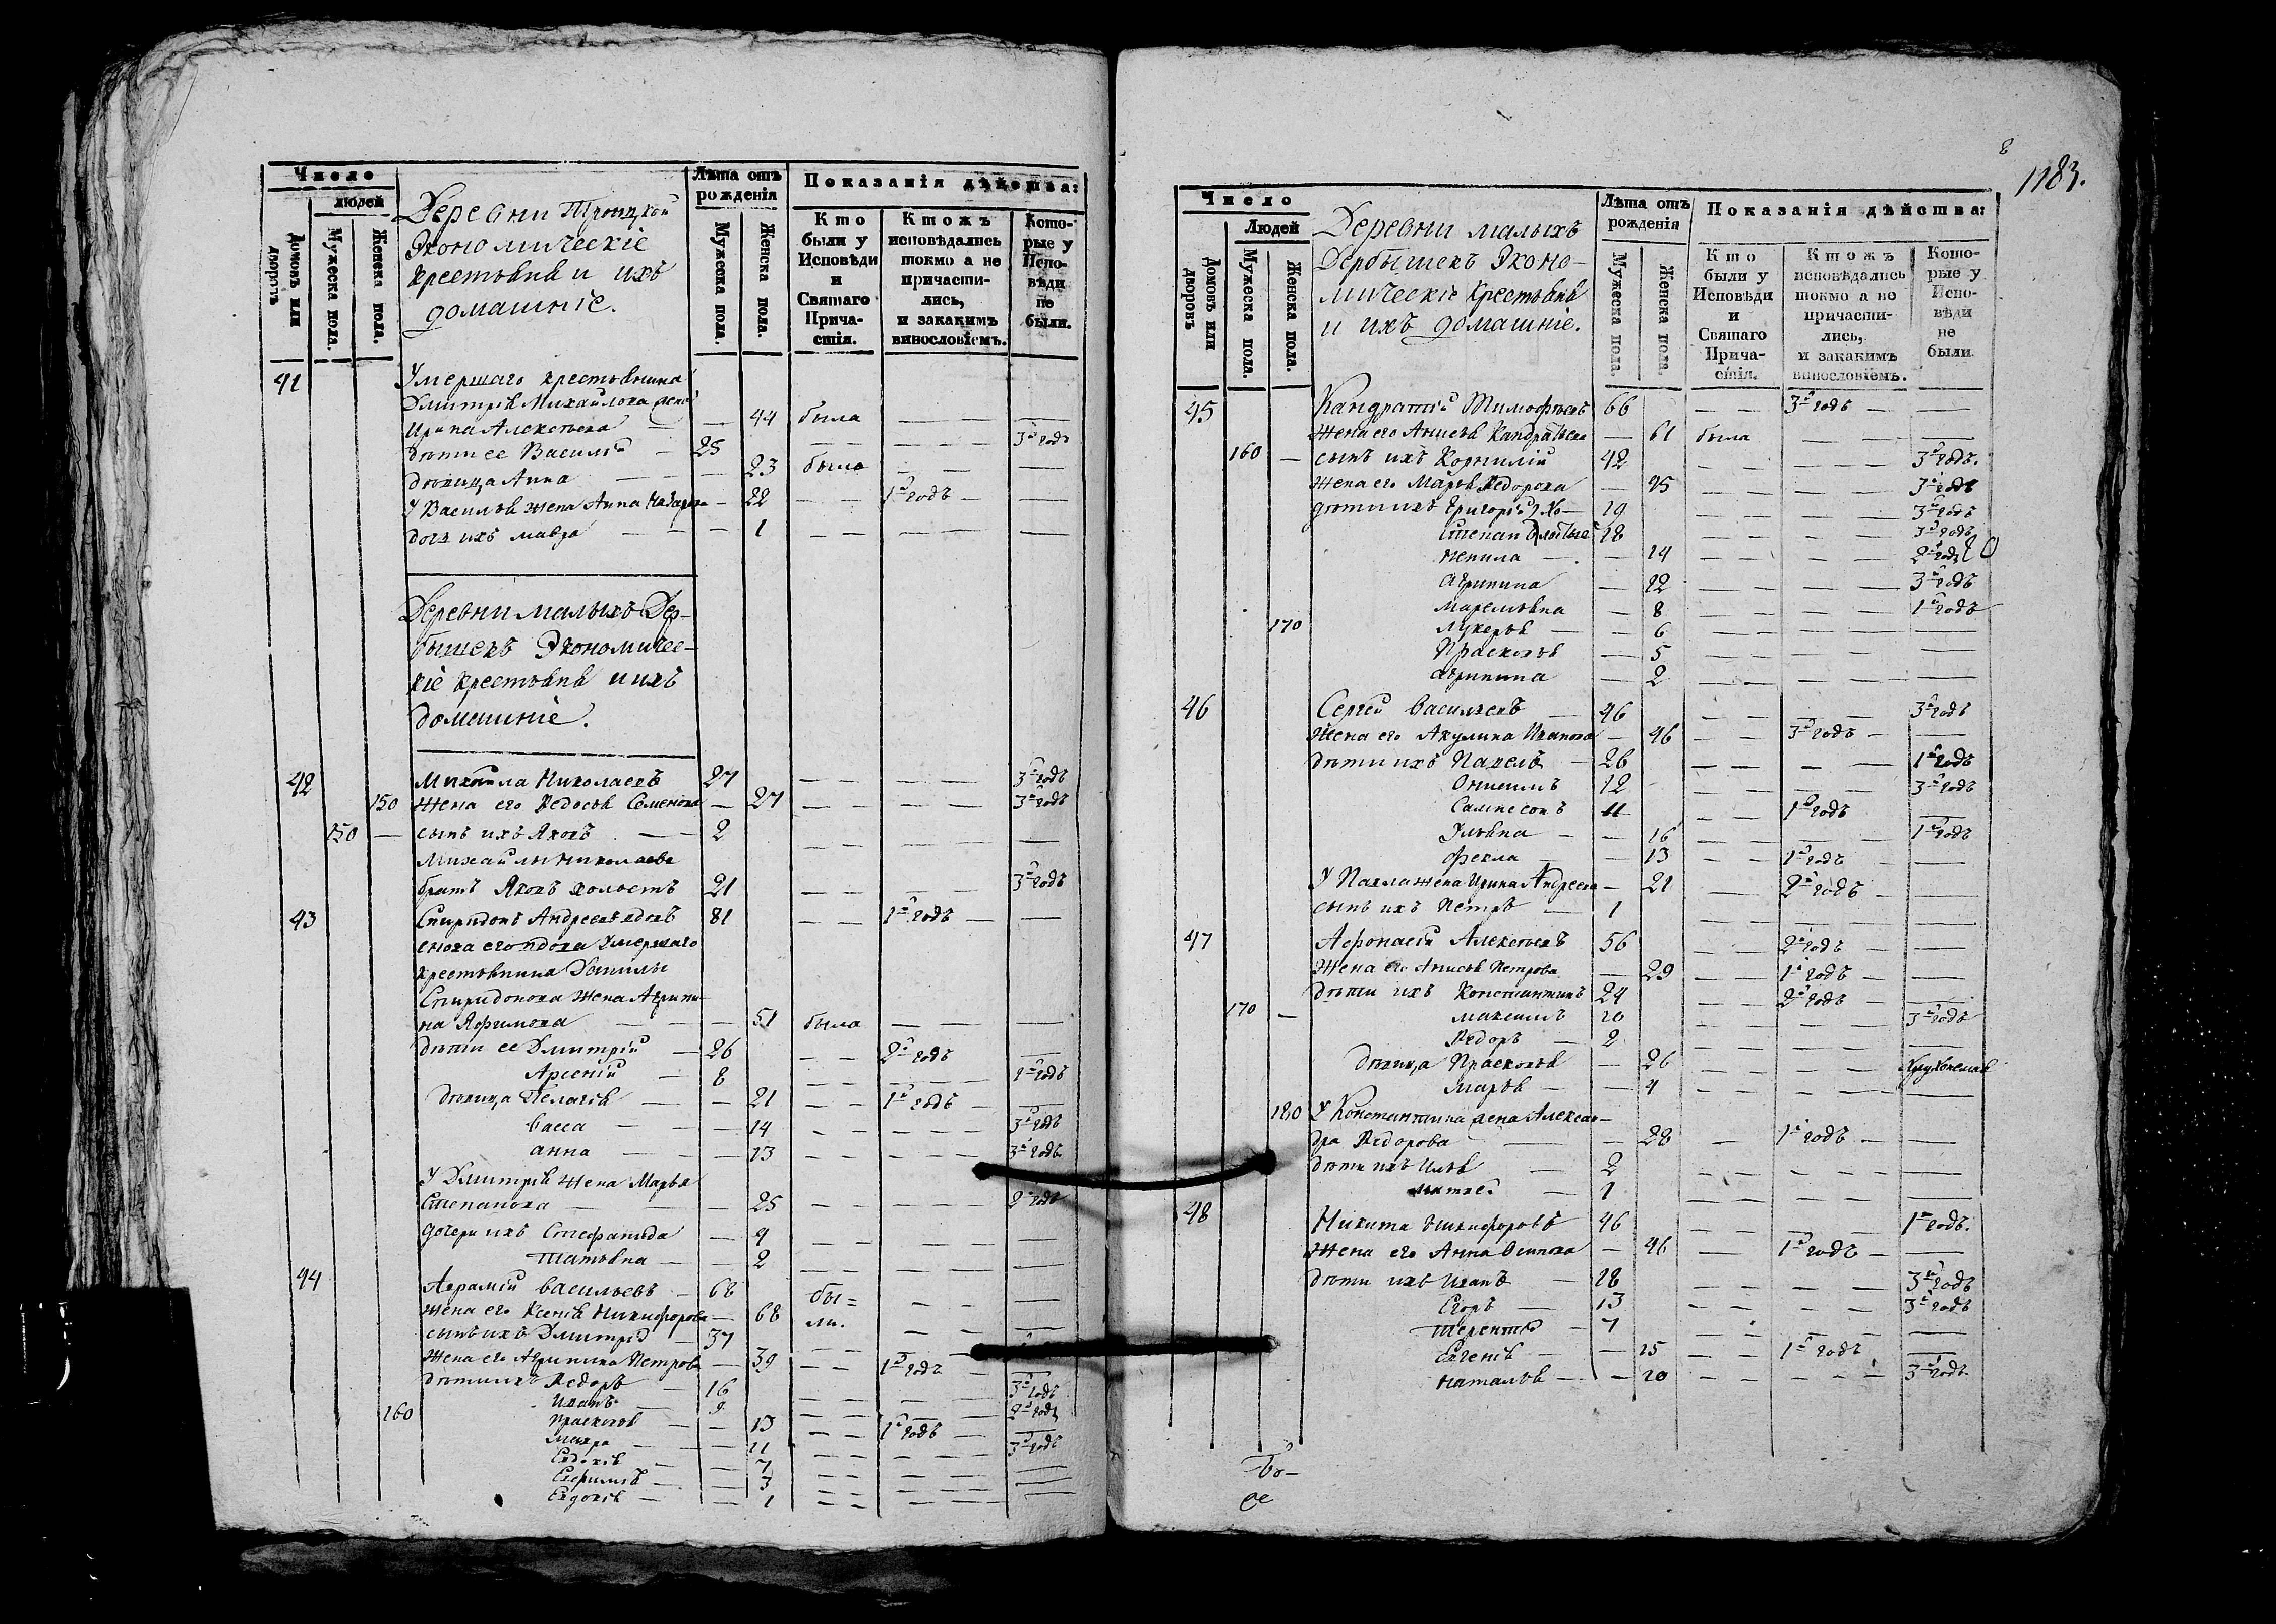 Число
людей
Домовъ или дворовъ
Мужеска пола.
Женска пола.
Деревни Троицкой
Экономическіе
крестьяня и ихъ
домашніе.
Лѣта отъ рожденія
Мужеска пола.
Женска пола.
Показанія дѣйства:
Кто были у Исповѣди и Святаго Причастія.
Ктожъ исповѣдались токмо а не причастились, и закакимъ винословіемъ.
Которые у Исповѣди не были.
41 Умершаго крестьянина
Дмитрія Михайлова жена
Ирина Алексѣева — — 44 была — — —
дѣти ее Василій — 25 — — — — 3й годъ
дѣвица Анна — — 23 была — — —
У Василья жена Анна Назарова — 22 — — 1й годъ — —
дочь ихъ Мавра — — 1 — — — — —
Деревни малыхъ Дер-
бышекъ Экономичес-
кіе крестьяня и ихъ
домашніе.
42 Михайла Николаевъ 27 — — — — 3й годъ
150 жена его Ѳедосья Семенова — 27 — — — — 3й годъ
150 — сынъ ихъ Яковъ — 2 — — — — —
Михайлы Николаева
братъ Яковъ холостъ 21 — — — — 3й годъ
43 Спиридонъ Андреевъ вдовъ 81 — — 1й годъ — —
сноха его вдова умершаго
крестьянина Данилы
Спиридонова жена Агрипи-
на Яфимова — — 51 была — — —
дѣти ее Дмитрій — 26 — — 2й годъ —
Арсеній — 8 — — — — 2й годъ
дѣвица Пелагѣя — — 21 — — 1й годъ — —
Васса — — 14 — — — — 3й годъ
Анна — — 13 — — — — 3й годъ
У Дмитрія жена Марья
Степанова — — 25 — — — — 2й годъ
дочери ихъ Стефанида — 4 — — — — —
Татьяна — — 2 — — — — —
44 Аврамій Васильевъ — 68 бы= — — —
жена его Ксенія Никифорова — 68 ли. — — —
сынъ ихъ Дмитрій — 37 — — — —
жена его Агрипина Петрова — 39 — — 1й годъ — —
дѣти ихъ Ѳедоръ — 16 — — — — 3й годъ
Иванъ — 9 — — — — 2й годъ
160 Прасковья — — 13 — — 1й годъ — —
Мавра — — 11 — — — — 3й годъ
Евдокія — — 7 — — — — —
— — 3 — — — — —
Евдокія — — 1 — — — — —
8
1183.
Число
Людей
Домовъ или дворовъ
Мужеска пола.
Женска пола.
Деревни малыхъ
Дербышекъ Эконо-
мическіе крестьяня
и ихъ домашніе.
Лѣта отъ рожденія
Мужеска пола.
Женска пола.
Показанія дѣйства:
Кто были у Исповѣди и Святаго Причастія.
Ктожъ исповѣдались токмо а но причастились, и закакимъ винословіемъ.
Которые у Исповѣди не были.
45 Кандратій Тимофѣевъ 66 — — 3й годъ — —
жена его Анисья Кандратьева — 61 была — — —
160 — сынъ ихъ Корнилій 42 — — — — 3й годъ.
жена его Марья Ѳедорова — 45 — — — — 3й годъ
дѣти ихъ Григорій 19 — — — — 3й годъ
Степанъ 18 — — — — 3й годъ
Ненила — — 14 — — — — 2й годъ
Агрипина — 12 — — — — 3й годъ
Маремьяна — 8 — — — — 1й годъ
170 Лукерья — — 6 — — — — —
Прасковья — 5 — — — — —
Агрипина — 2 — — — — —
46 Сергей Васильевъ — 46 — — — — 3й годъ
жена его Акулина Иванова — 46 — — 3й годъ — —
дѣти ихъ Павелъ — 26 — — — — 1й годъ
Онисимъ 12 — — — — 3й годъ
Сампсонъ 11 — — 1й годъ —
Ульяна — — 16 — — — — 1й годъ
Фекла — — 13 — — 1й годъ — —
У Павла жена Ирина Андреева — 21 — 2й годъ — —
сынъ ихъ Петръ — 1 — — — — —
47 Афонасій Алексѣевъ 56 — — 2й годъ — —
жена его Анисья Петрова — 29 — — 1й годъ — —
дѣти ихъ Константинъ 24 — — 2й годъ — —
170 — Максимъ 10 — — — — 3й годъ
Ѳедоръ — 2 — — — — —
дѣвица Прасковья — 26 — — — —
Марья — — 4 — — — — —
180 У Константина жена Алексан-
дра Ѳедорова — — 28 — 1й годъ — —
дѣти ихъ Илья — 2 — — — — —
Матвей — 1 — — — — —
48 Никита Никифоровъ 46 — — — — 1й годъ.
жена его Анна Осипова — 46 — 1й годъ — —
дѣти ихъ Иванъ — 18 — — — — 3й годъ
Егоръ — 13 — — — — 3й годъ
Терентій — 7 — — — — —
Евгенія — — 15 — — 1й годъ —
Наталья — — 10 — — — — 3й годъ